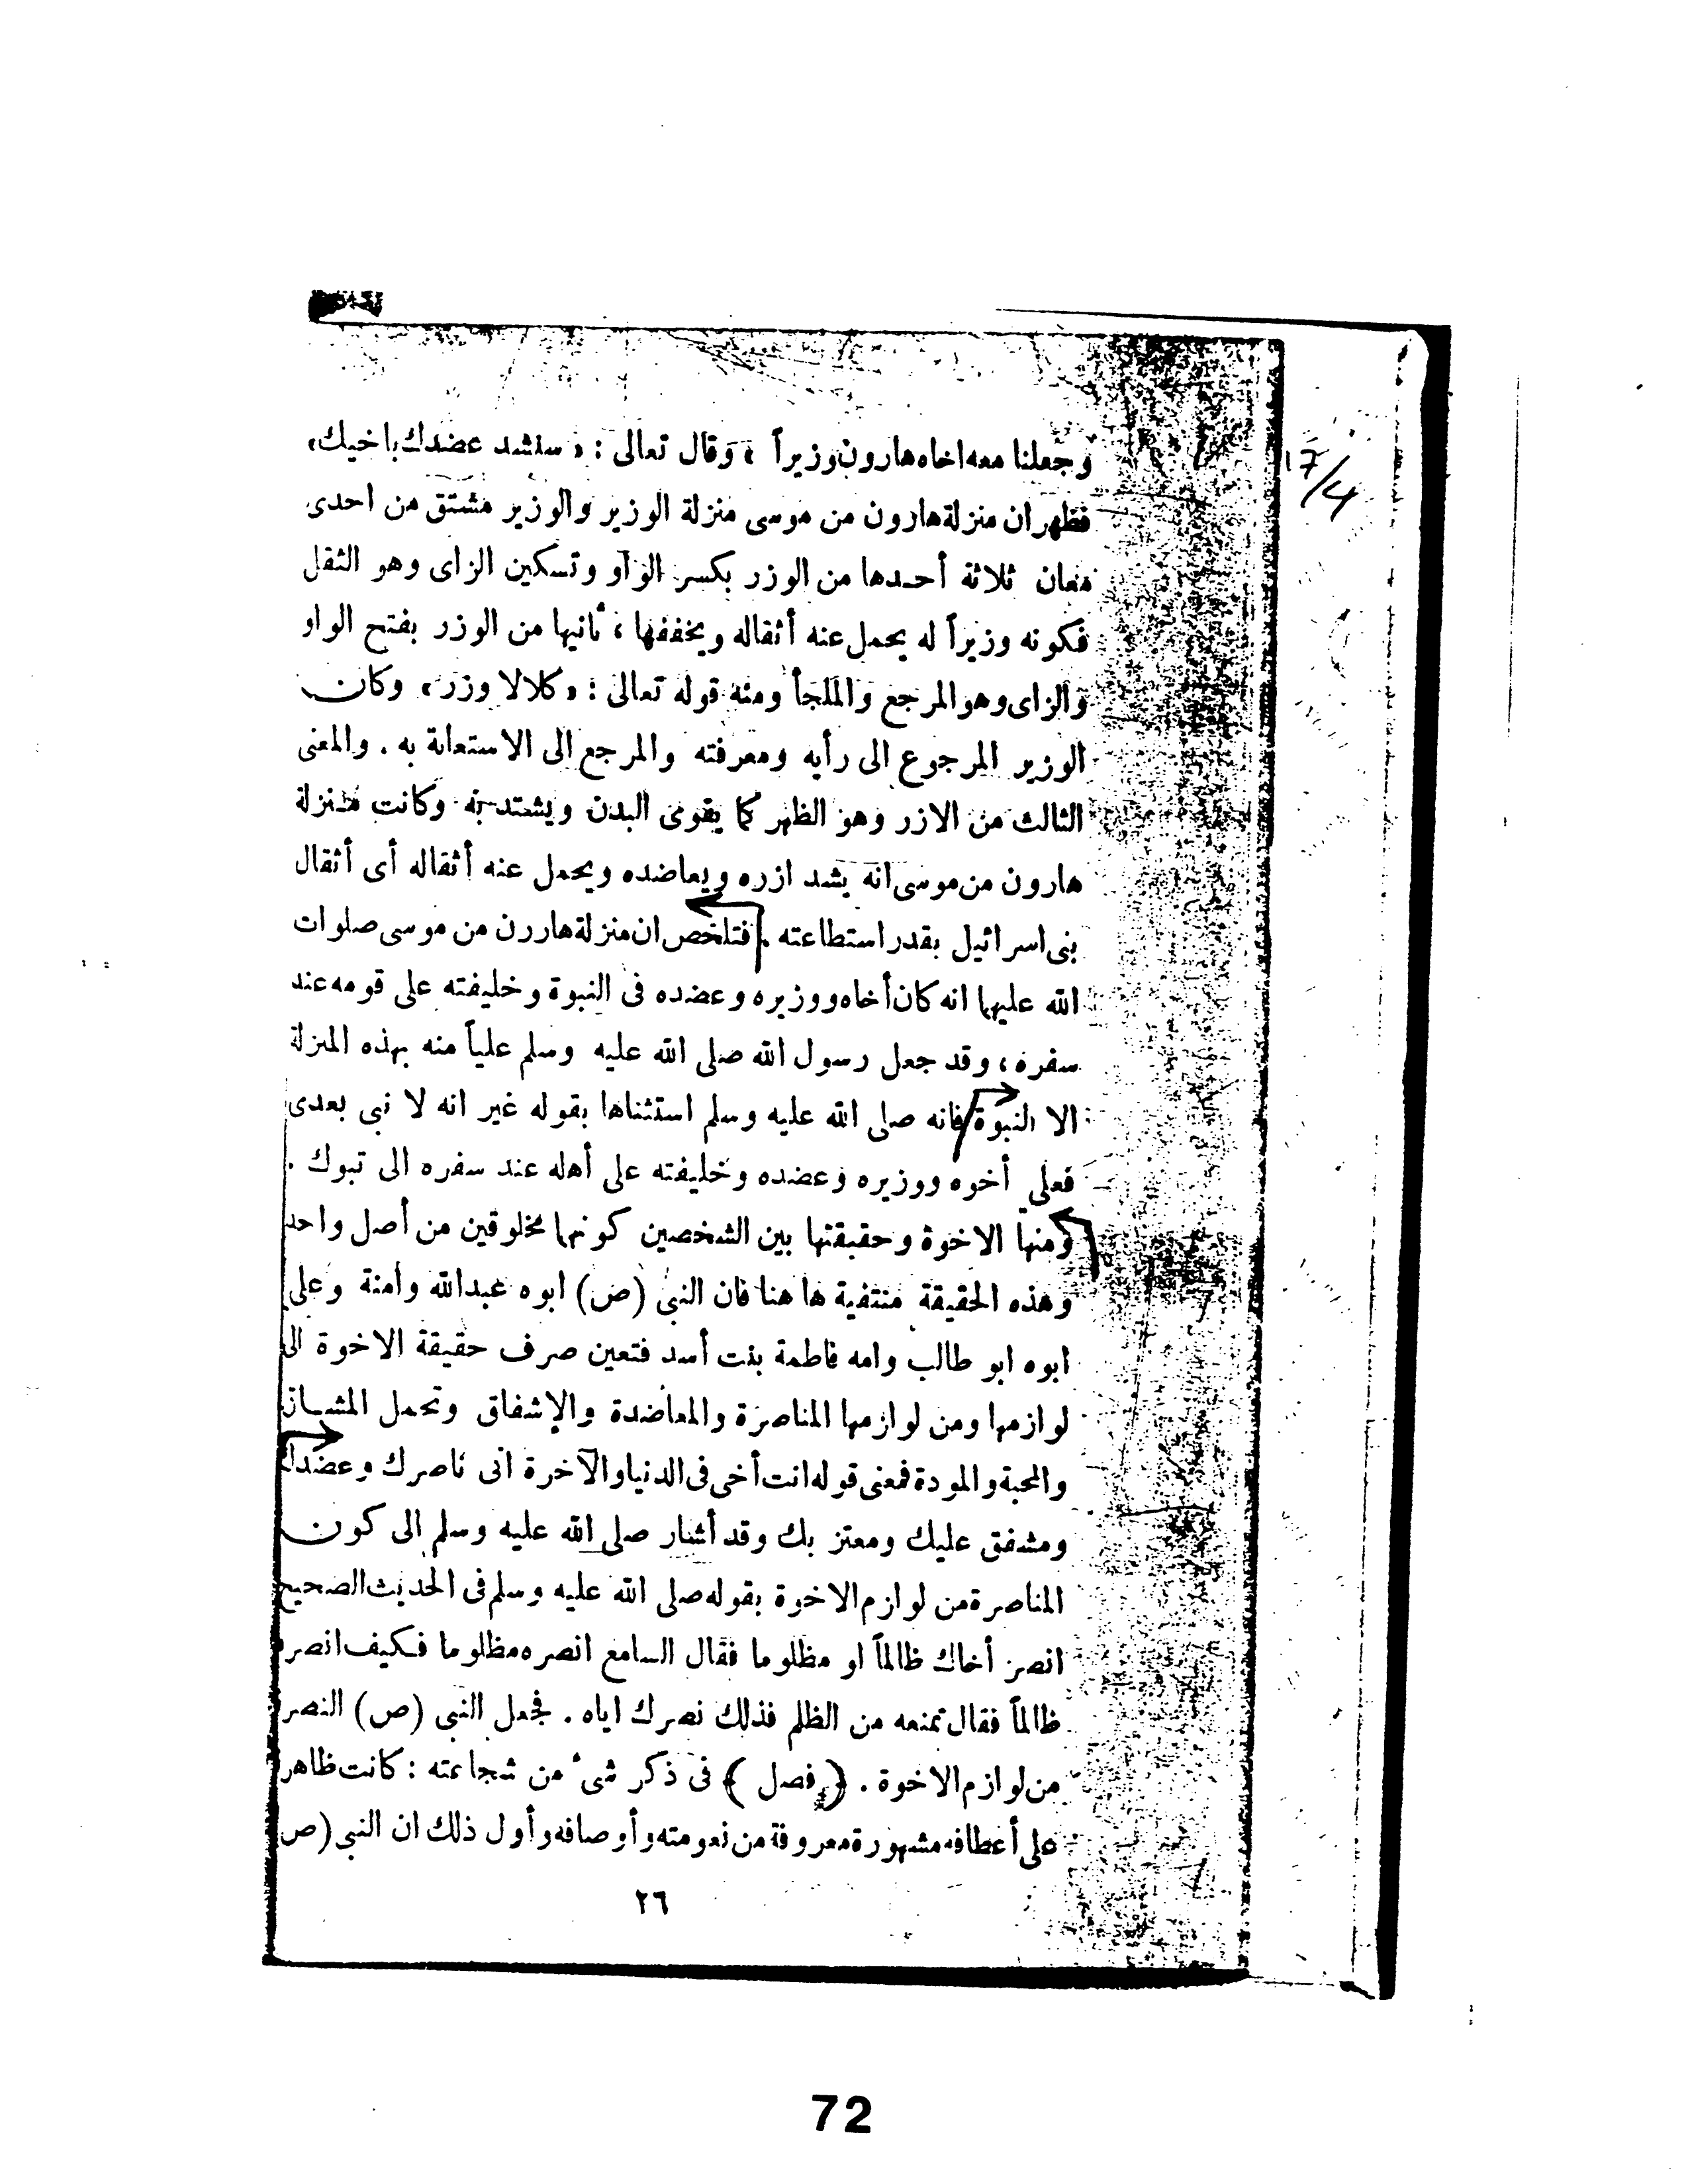 17/4
وجعلنا معه اخاه هارون وزيراً » وقال تعالى : « سنشد عضدك باخيك »
فظهر ان منزلة هارون من موسى منزلة الوزير والوزير مشتق من احدى
معان ثلاثة أحدها من الوزر بكسر الواو وتسكين الزاى وهو الثقل
فكونه وزيراً له يحمل عنه أثقاله ويخففها ، ثانيها من الوزر بفتح الواو
والزاى وهو المرجع والملجأ ومنه قوله تعالى : « كلا لا وزر » وكان
الوزير المرجوع الى رأيه ومعرفته والمرجع الى الاستعانة به . والمعنى
الثالث من الازر وهو الظهر كما يقوى البدن ويشتد به وكانت منزلة
هارون من موسى انه يشد ازره ويعاضده ويحمل عنه أثقاله أى أثقال
بنى اسرائيل بقدر استطاعته . فتلخص ان منزلة هاررن من موسى صلوات
الله عليهما انه كان أخاه ووزيره وعضده فى النبوة وخليفته على قومه عند
سفره ، وقد جعل رسول الله صلى الله عليه وسلم علياً منه بهذه المنزلة
الا النبوة فانه صلى الله عليه وسلم استثناها بقوله غير انه لا نبى بعدى
فعلي أخوه ووزيره وعضده وخليفته على أهله عند سفره الى تبوك .
ومنها الاخوة وحقيقتها بين الشخصين كونهما مخلوقين من أصل واحد
وهذه الحقيقة منتفية ها هنا فان النبى (ص) ابوه عبدالله وامنة وعلى
ابوه ابو طالب وامه فاطمة بنت أسد فتعين صرف حقيقة الاخوة الى
لوازمها ومن لوازمها المناصرة والمعاضدة والإشفاق وتحمل المشاق
والمحبة والمودة فمعنى قوله انت أخى فى الدنيا والآخرة انى ناصرك وعضدك
ومشفق عليك ومعتز بك وقد أشار صلى الله عليه وسلم الى كون
المناصرة من لوازم الاخوة بقوله صلى الله عليه وسلم فى الحديث الصحيح
انصر أخاك ظالماً او مظلوما فقال السامع انصره مظلوما فكيف انصره
ظالماً فقال تمنعه من الظلم فذلك نصرك اياه . فجعل النبى (ص) النصر
من لوازم الاخوة . ﴿ فصل ﴾ فى ذكر شىء من شجاعته : كانت ظاهر
على أعطافه مشهورة معروفة من نعومته وأوصافه وأول ذلك ان النبى (ص
٢٦
72